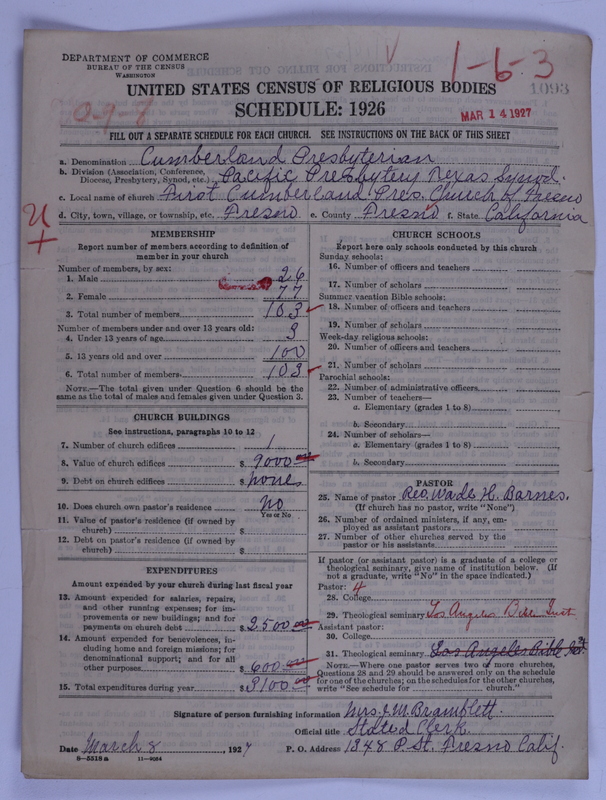 DEPARTMENT OF COMMERCE
BUREAU OF THE CENSUS
WASHINGTON
1-6-3
1093
UNITED STATES CENSUS OF RELIGIOUS BODIES
SCHEDULE: 1926
0-9-8
MAR 14 1927
FILL OUT A SEPARATE SCHEDULE FOR EACH CHURCH. SEE INSTRUCTIONS ON THE BACK OF THIS SHEET
a. Denomination Cumberland Presbyterian
b. Division (Association, Conference, Diocese, Presbytery, Synod, etc.) Pacific Presbytery Texas Synod.
c. Local name of church First Cumberland Pres. Church of Fresno
d. City, town, village, or township, etc. Fresno e. County Fresno f. State California
MEMBERSHIP
Report number of members according to definition of
member in your church
Number of members, by sex:
1. Male 26
2. Female 77
3. Total number of members 103
Number of members under and over 13 years old:
4. Under 13 years of age 3
5. 13 years old and over 100
6. Total number of members 103
NOTE.—The total given under Question 6 should be the
same as the total of males and females given under Question 3.
CHURCH BUILDINGS
See instructions, paragraphs 10 to 12
7. Number of church edifices 1
8. Value of church edifices $ 9000.00
9. Debt on church edifices $ none
10. Does church own pastor's residence no
Yes or No
11. Value of pastor's residence (if owned by
church) $
12. Debt on pastor's residence (if owned by
church) $
EXPENDITURES
Amount expended by your church during last fiscal year
13. Amount expended for salaries, repairs,
and other running expenses; for im-
provements or new buildings; and for
payments on church debt $2500.00
14. Amount expended for benevolences, in-
cluding home and foreign missions; for
denominational support; and for all
other purposes $600.00
15. Total expenditures during year $3100.00
CHURCH SCHOOLS
Report here only schools conducted by this church
Sunday schools:
16. Number of officers and teachers
17. Number of scholars
Summer vacation Bible schools:
18. Number of officers and teachers
19. Number of scholars
Week-day religious schools:
20. Number of officers and teachers
21. Number of scholars
Parochial schools:
22. Number of administrative officers
23. Number of teachers—
a. Elementary (grades 1 to 8)
b. Secondary
24. Number of scholars—
a. Elementary (grades 1 to 8)
b. Secondary
PASTOR
25. Name of pastor Rev. Wade H. Barnes.
(If church has no pastor, write "None")
26. Number of ordained ministers, if any, em-
ployed as assistant pastors
27. Number of other churches served by the
pastor or his assistants
If pastor (or assistant pastor) is a graduate of a college or
theological seminary, give name of institution below. (If
not a graduate, write "No" in the space indicated.)
Pastor: 4
28. College
29. Theological seminary Los Angeles Bible Inst
Assistant pastor:
30. College
31. Theological seminary Los Angeles Bible Inst.
NOTE.—Where one pastor serves two or more churches,
Questions 28 and 29 should be answered only on the schedule
for one of the churches; on the schedules for the other churches,
write "See schedule for church."
Signature of person furnishing information Mrs. J. M. Bramblett.
Official title Stated Clerk.
Date March 8, 1927 P. O. Address 1348 P. St. Fresno Calif.
8-5518 a 11-9054